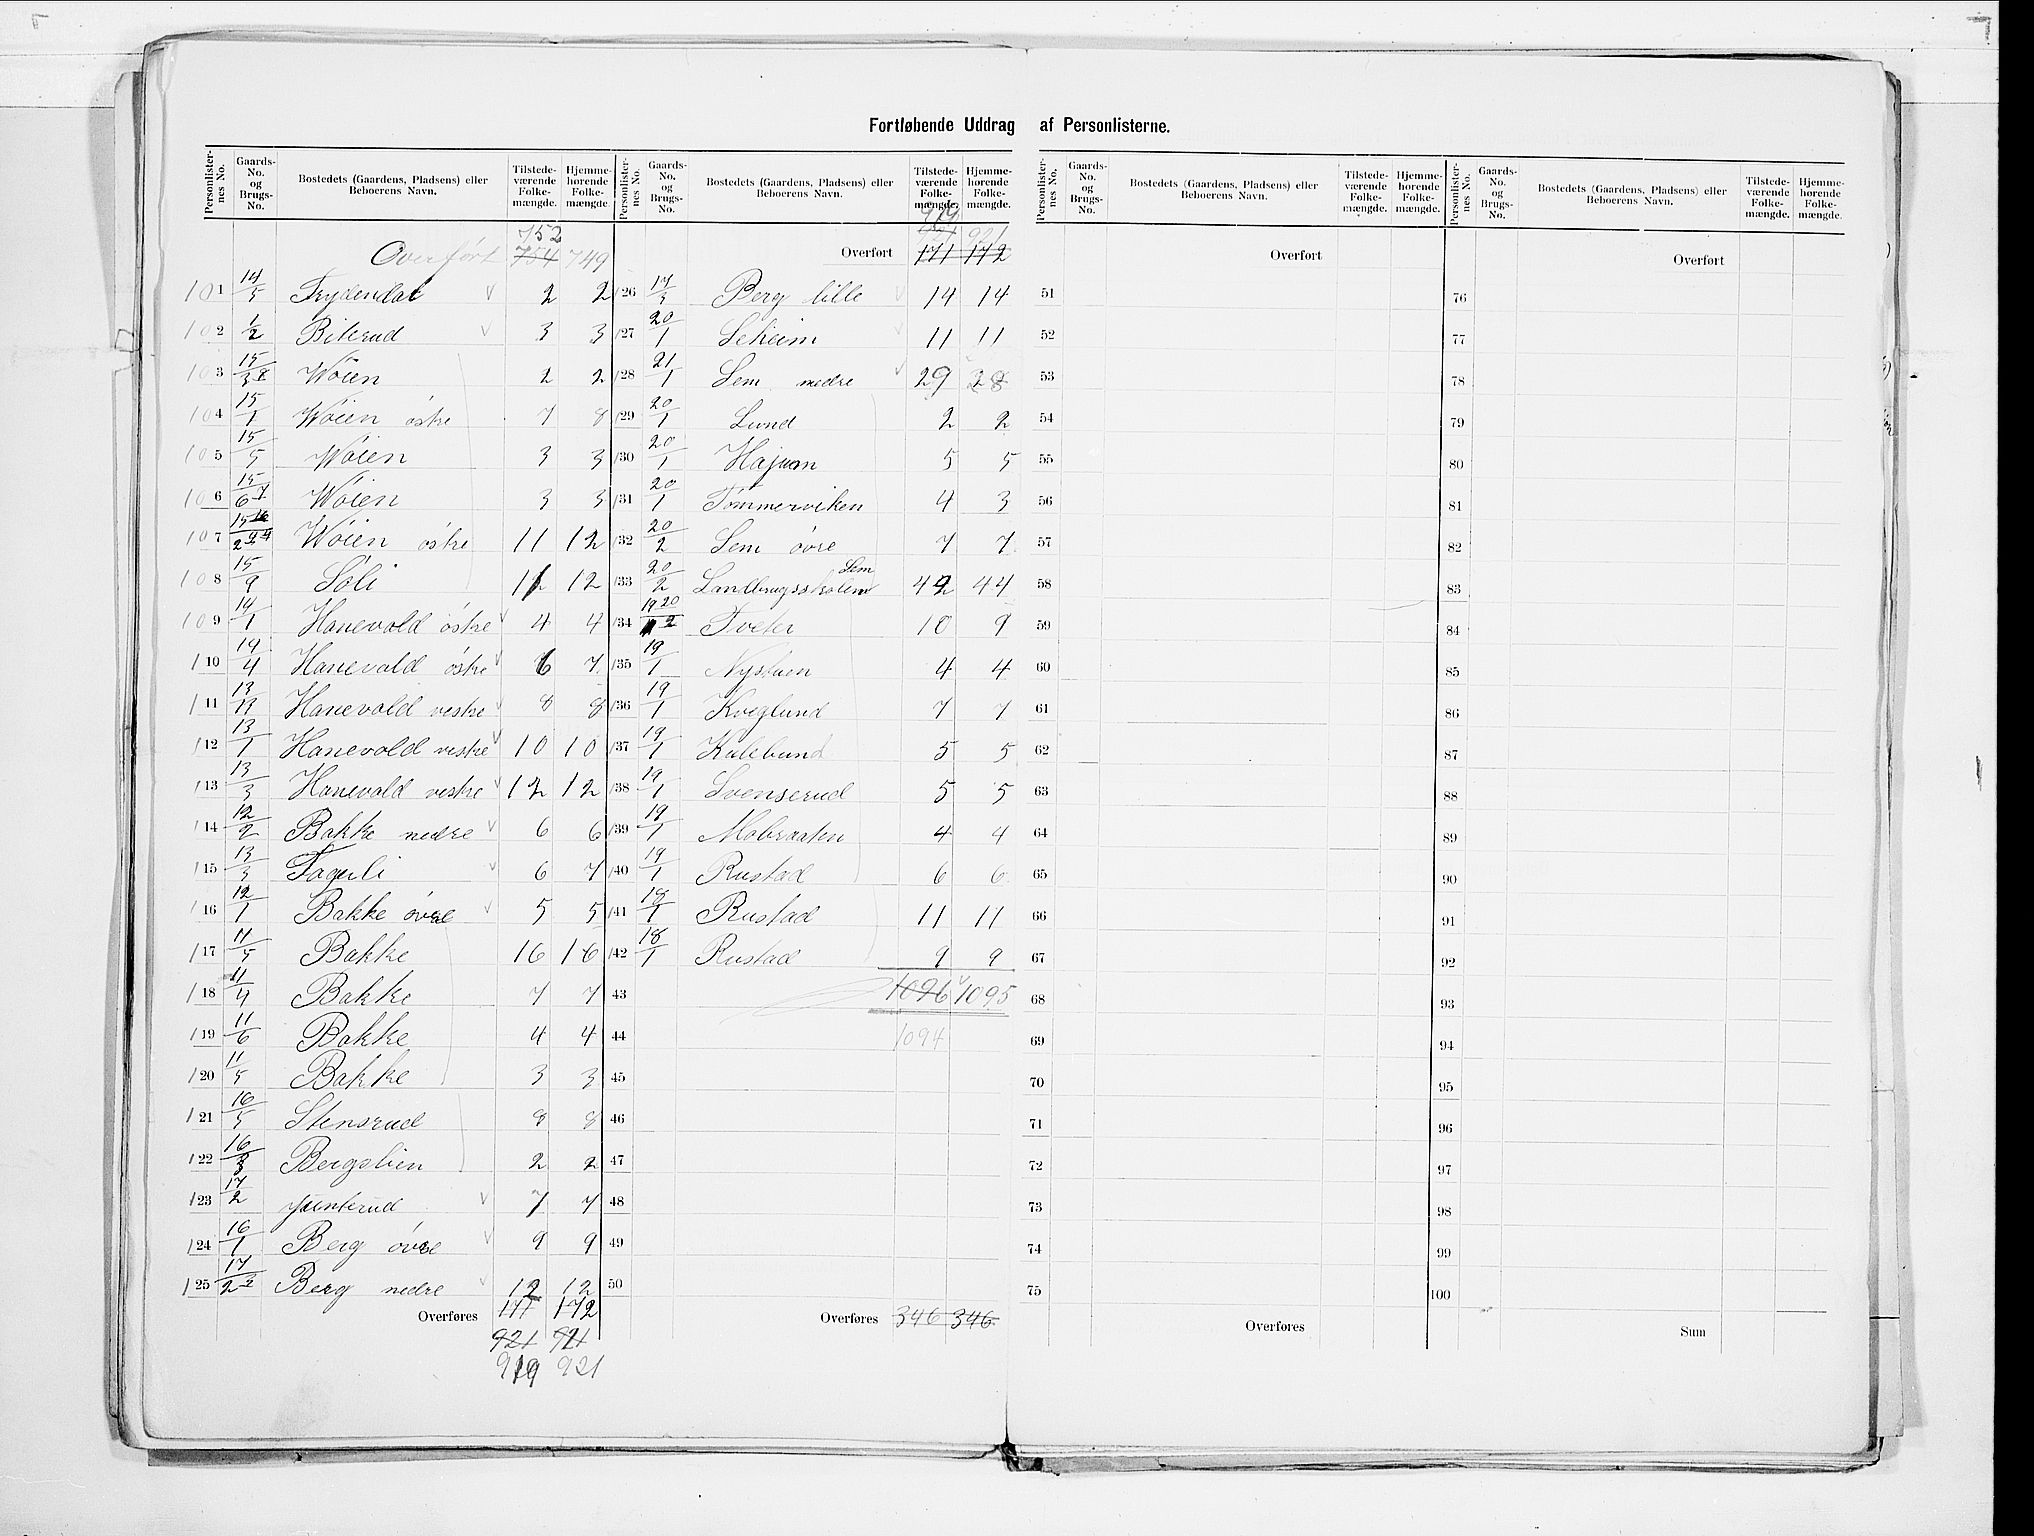 Fortløbende Uddrag af Personlisterne.
Personlisternes No. Gaards-No. og Brugs-No. Bostedets (Gaardens, Pladsens) eller Beboerens Navn. Tilstedeværende Folkemængde. Hjemmehørende Folkemængde.
752
Overført 754 749
101 14/5 Frydendal 2 2
102 1/2 Biterud 3 3
103 15/3 8 Wøien 2 2
104 15/1 Wøien östre 7 8
105 15/5 Wøien 3 3
106 15/6 7 Wøien 3 3
107 Wøien östre 11 12
108 15/9 Söli 12 12
109 14/1 Hanevold östre 4 4
110 14/4 Hanevold östre 6 7
111 Hanevold vestre 8 8
112 13/1 Hanevold vestre 10 10
113 13/3 Hanevold vestre 12 12
114 12/2 Bakke nedre 6 6
115 13/3 Fagerli 6 7
116 12/1 Bakke övre 5 5
117 11/5 Bakke 16 16
118 11/4 Bakke 7 7
119 11/6 Bakke 4 4
120 11/5 Bakke 3 3
121 16/5 Stensrud 8 8
122 Bergslien 2 2
123 17/2 Jünterud 7 7
124 16/1 Berg övre 9 9
125 17/2 3 Berg nedre 12 12
Overføres 171 172
921 921
919 921
Personlisternes No. Gaards-No. og Brugs-No. Bostedets (Gaardens, Pladsens) eller Beboerens Navn. Tilstedeværende Folkemængde. Hjemmehørende Folkemængde.
919
921 921
Overført 171 172
126 17/3 Berg lille 14 14
127 20/1 Seheim 11 11
128 21/1 Sem nedre 29 28
129 20/1 Lund 2 2
130 20/1 Hajum 5 5
131 20/1 Tömmerviken 4 3
132 20/2 Sem övre 7 7
133 20/2 Landbrugsskolen Sem 42 44
134 19 20/1 2 Tveter 10 9
135 19/1 Nystuen 4 4
136 19/1 Kveglund 7 7
137 19/1 Kalebund 5 5
138 19/1 Svenserud 5 5
139 19/1 Mobraaten 4 4
140 19/1 Rustad 6 6
141 18/1 Rustad 11 11
142 18/1 Rustad 9 9
43 1096 1095
44 1094
45
46
47
48
49
50
Overføres 346 346
Personlisternes No. Gaards-No. og Brugs-No. Bostedets (Gaardens, Pladsens) eller Beboerens Navn. Tilstedeværende Folkemængde. Hjemmehørende Folkemængde.
Overført
51
52
53
54
55
56
57
58
59
60
61
62
63
64
65
66
67
68
69
70
71
72
73
74
75
Overføres
Personlisternes No. Gaards-No. og Brugs-No. Bostedets (Gaardens, Pladsens) eller Beboerens Navn. Tilstedeværende Folkemængde. Hjemmehørende Folkemængde.
Overført
76
77
78
79
80
81
82
83
84
85
86
87
88
89
90
91
92
93
94
95
96
97
98
99
100
Sum